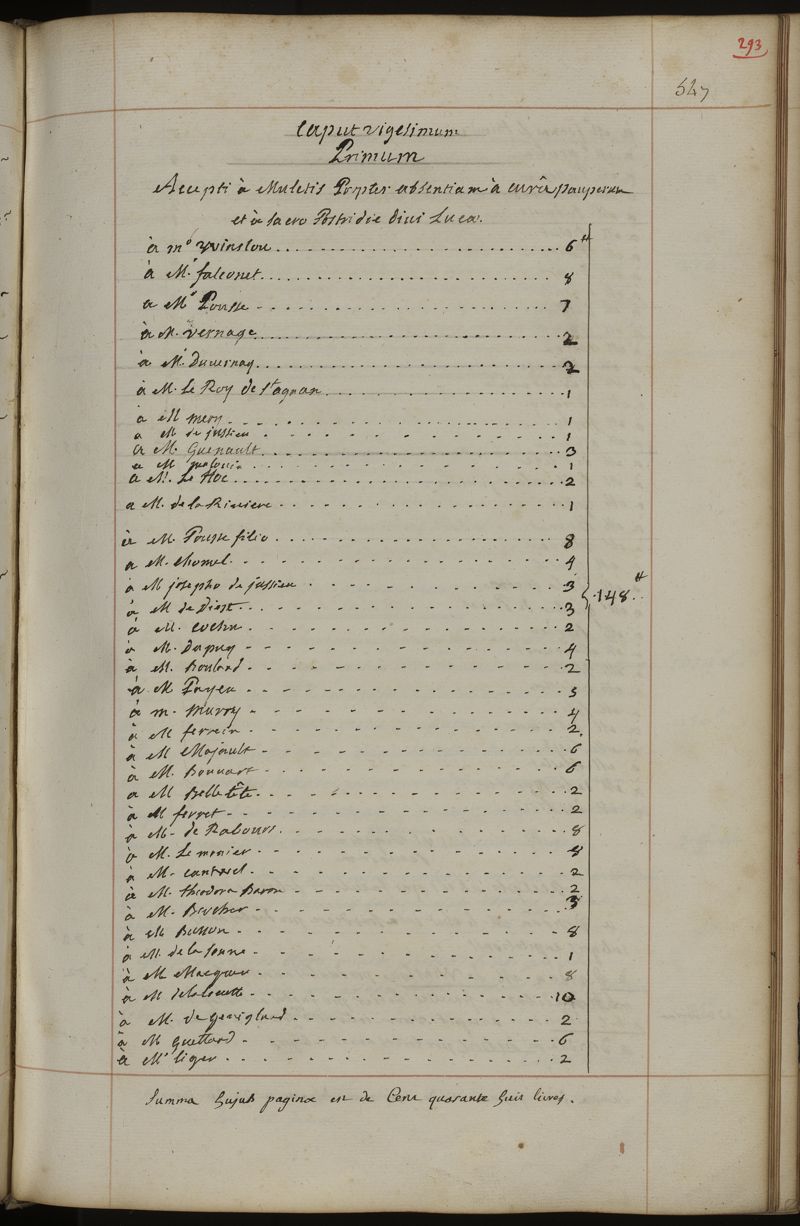 293
547
Caput vigesimum
Primum
Accepti à Muletis Propter absentiam à curâ pauperum
et à sacro Postridie divi Lucæ.
à mr Winslou 6 ₶
à Mr falconet 8
a Mr Pousse 7
à M. Vernage 2
à Mr Duvernay 2
à M. Le Roy de St agnan 1
à M mery 1
a M de jussieu 1
a M. Guenault 3
a M 1
a M. Le Hoc 2
a M. de la Riviere 1
à M. Pousse filio 8
a M. Chomel 4
à M josepho de jussieu 3
à M de Diest 3
148 ₶
à M. Cochu 2
à M. Dupuy 4
à M. Boulard 2
à M Payen 3
à m. Murry 4
à M ferrein 2
à M Majault 6
à M. Bonnart 6
a M Belletête 2
à M ferret 2
à M. de Rabours 8
à M. Le monier 8
à M. cantwel 2
à M. theodora Baron 2
à M. Bercher 3
à M Busson 8
à M. de la Sonne 1
à M Macquer 8
à M 10
à M. de Gevigland 2
à M Guettard 6
à Mr liger 2
Summa hujus paginæ est de Cent quarante huit livres.